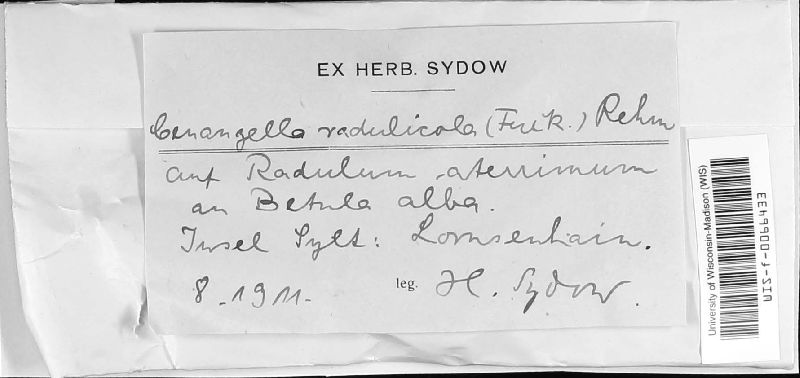 EX HERB. SYDOW
Cenangella radulicola (Fuck.) Rehm
auf Radulum aterrimum
an Betula alba.
Insel Sylt: Lornsenhain.
8.1911.
leg. H. Sydow.
University of Wisconsin-Madison (WIS)
WIS-f-0066433